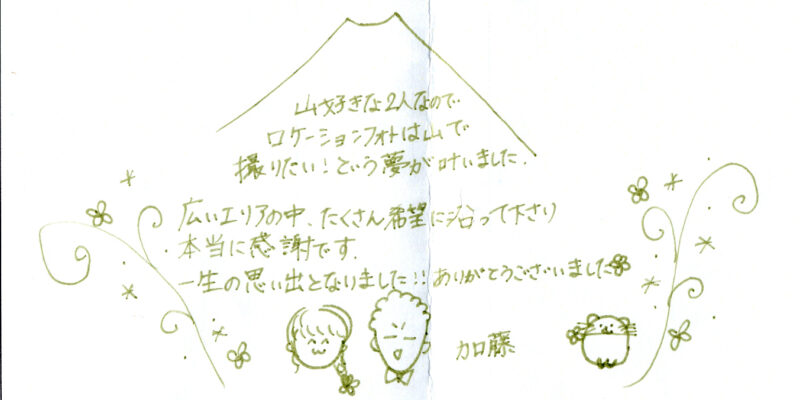 山好きな2人なので
ロケーションフォトは山で
撮りたい！という夢が叶いました.
広いエリアの中、たくさん希望に沿って下さり
本当に感謝です.
一生の思い出となりました!! ありがとうございました
加藤